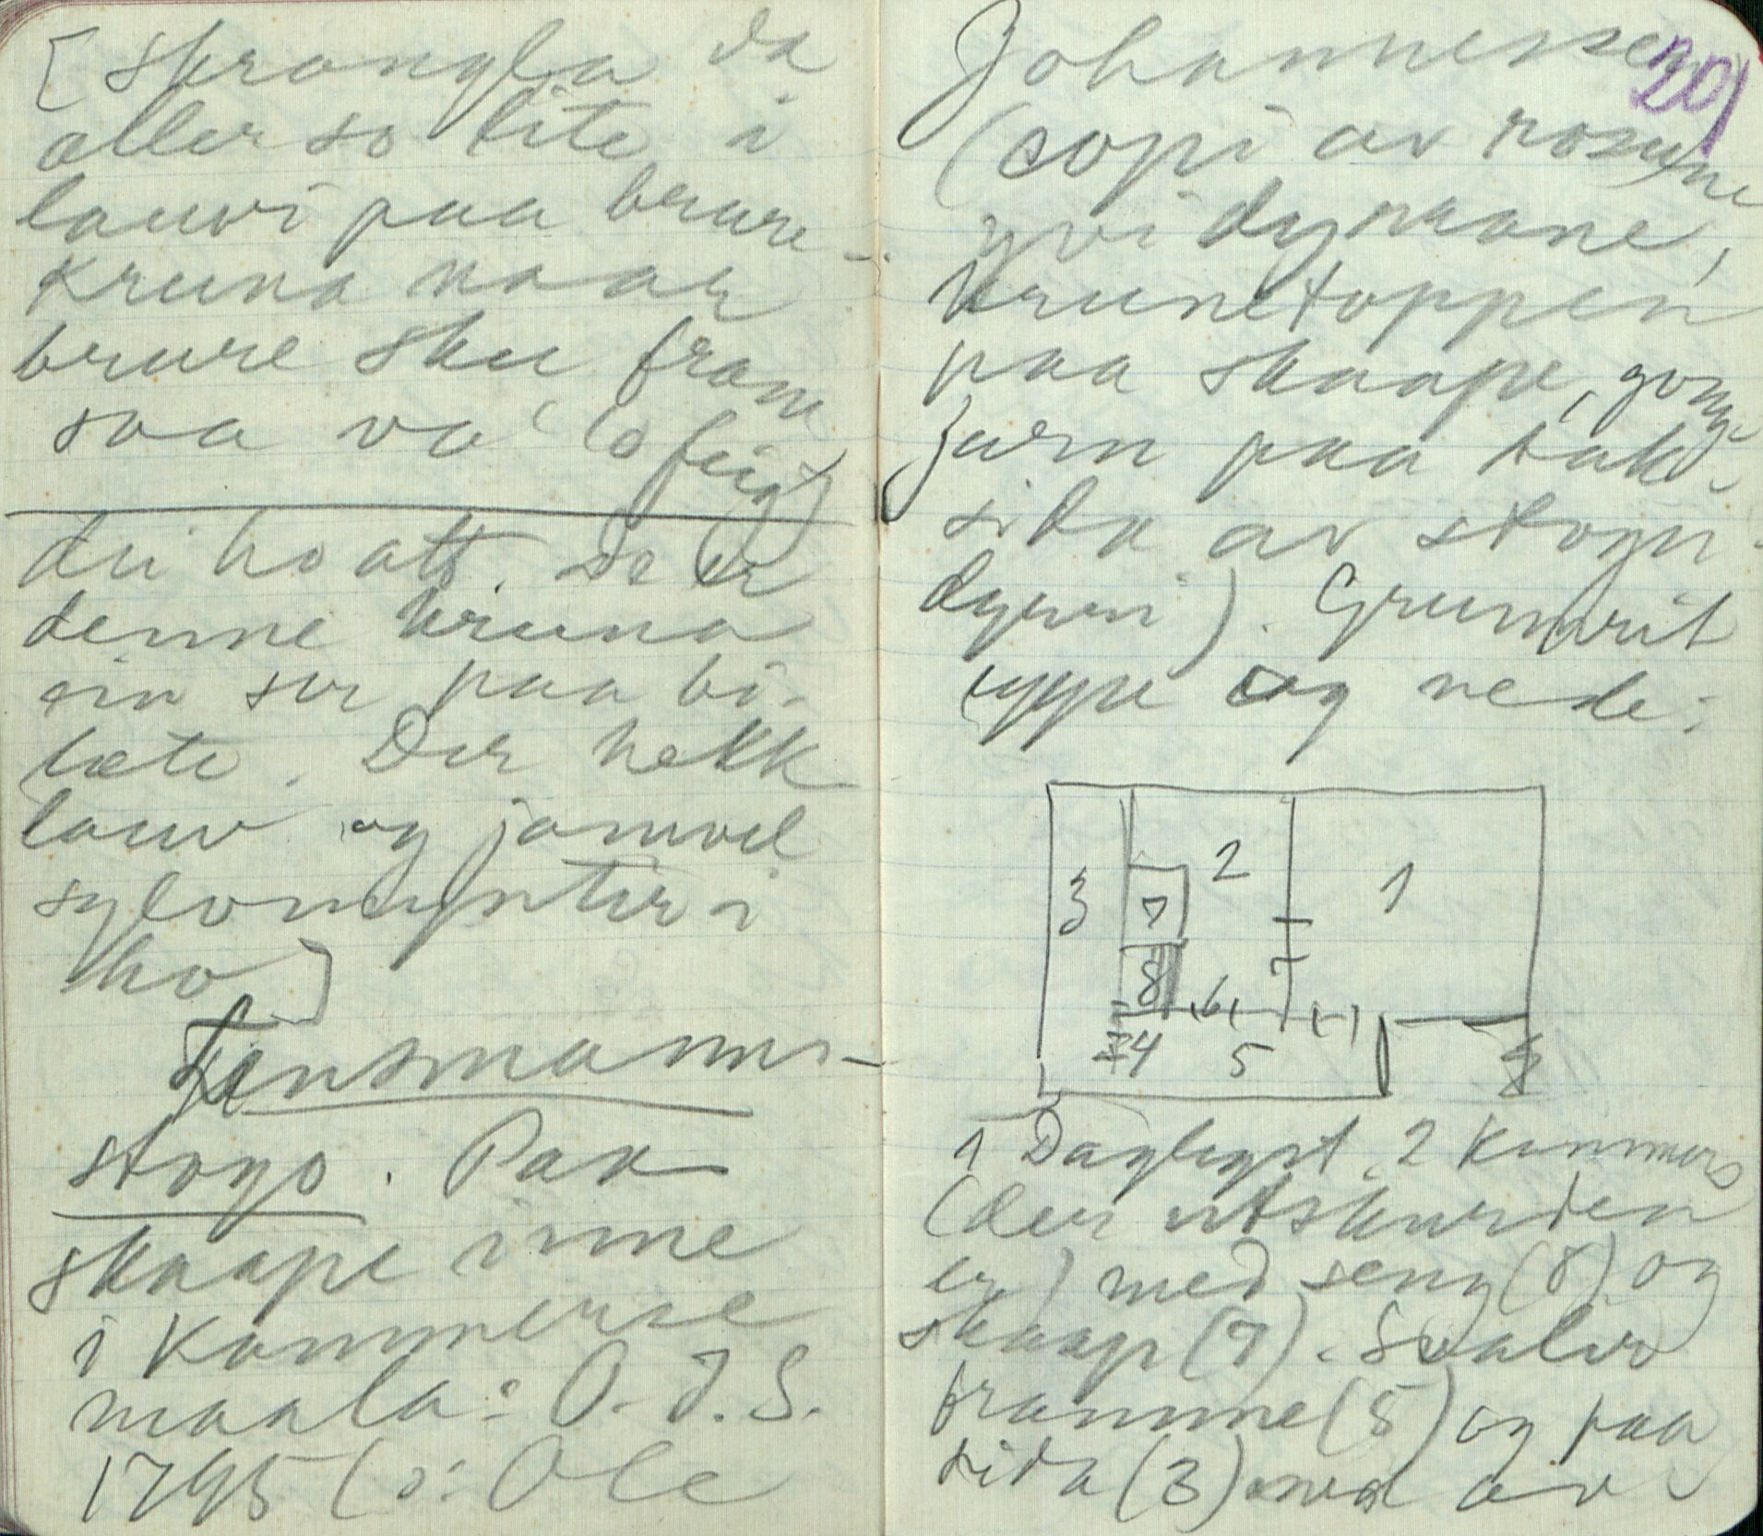 [Skrangla da
aller so lite i
lauvi paa brure-
kruna naar
brure sku fram
saa va' (o feig)
dei ho att. De er
denne kruna
ein ser paa bi-
læte. Der hekk
lauv og jamvel
sylvmyntir i
ho]
Lensmanns-
stogo. Paa
skaape inne
i Kammerse
maala: O. J. S.
1795 (ɔ: Ole
Johannessen)
20
(copi av rosune
yvi dynnane,
krunetoppen
paa skaape, gong-
jarn paa bak-
sida av stogu-
dynni). Grunnrit
uppe og nede:
3 7 2 1
8 6
4 5
1 Daglegst. 2 Kammers
(der utskurden
er) med seng (8) og
skaap (7). Svalir
framme (5) og paa
sida (3) med av-